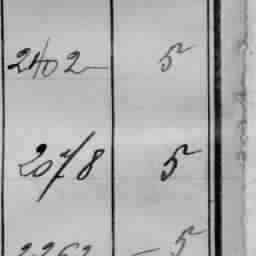 2402 5
2078 5
2262 - 5